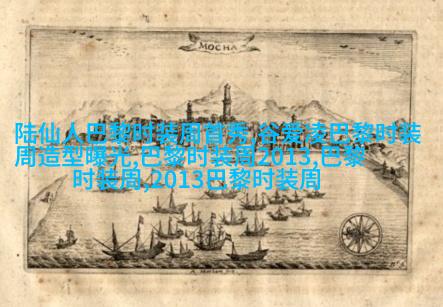 MOCHA
陆仙人巴黎时装周首秀,谷爱凌巴黎时装
周造型曝光,巴黎时装周2013,巴黎
时装周,2013巴黎时装周